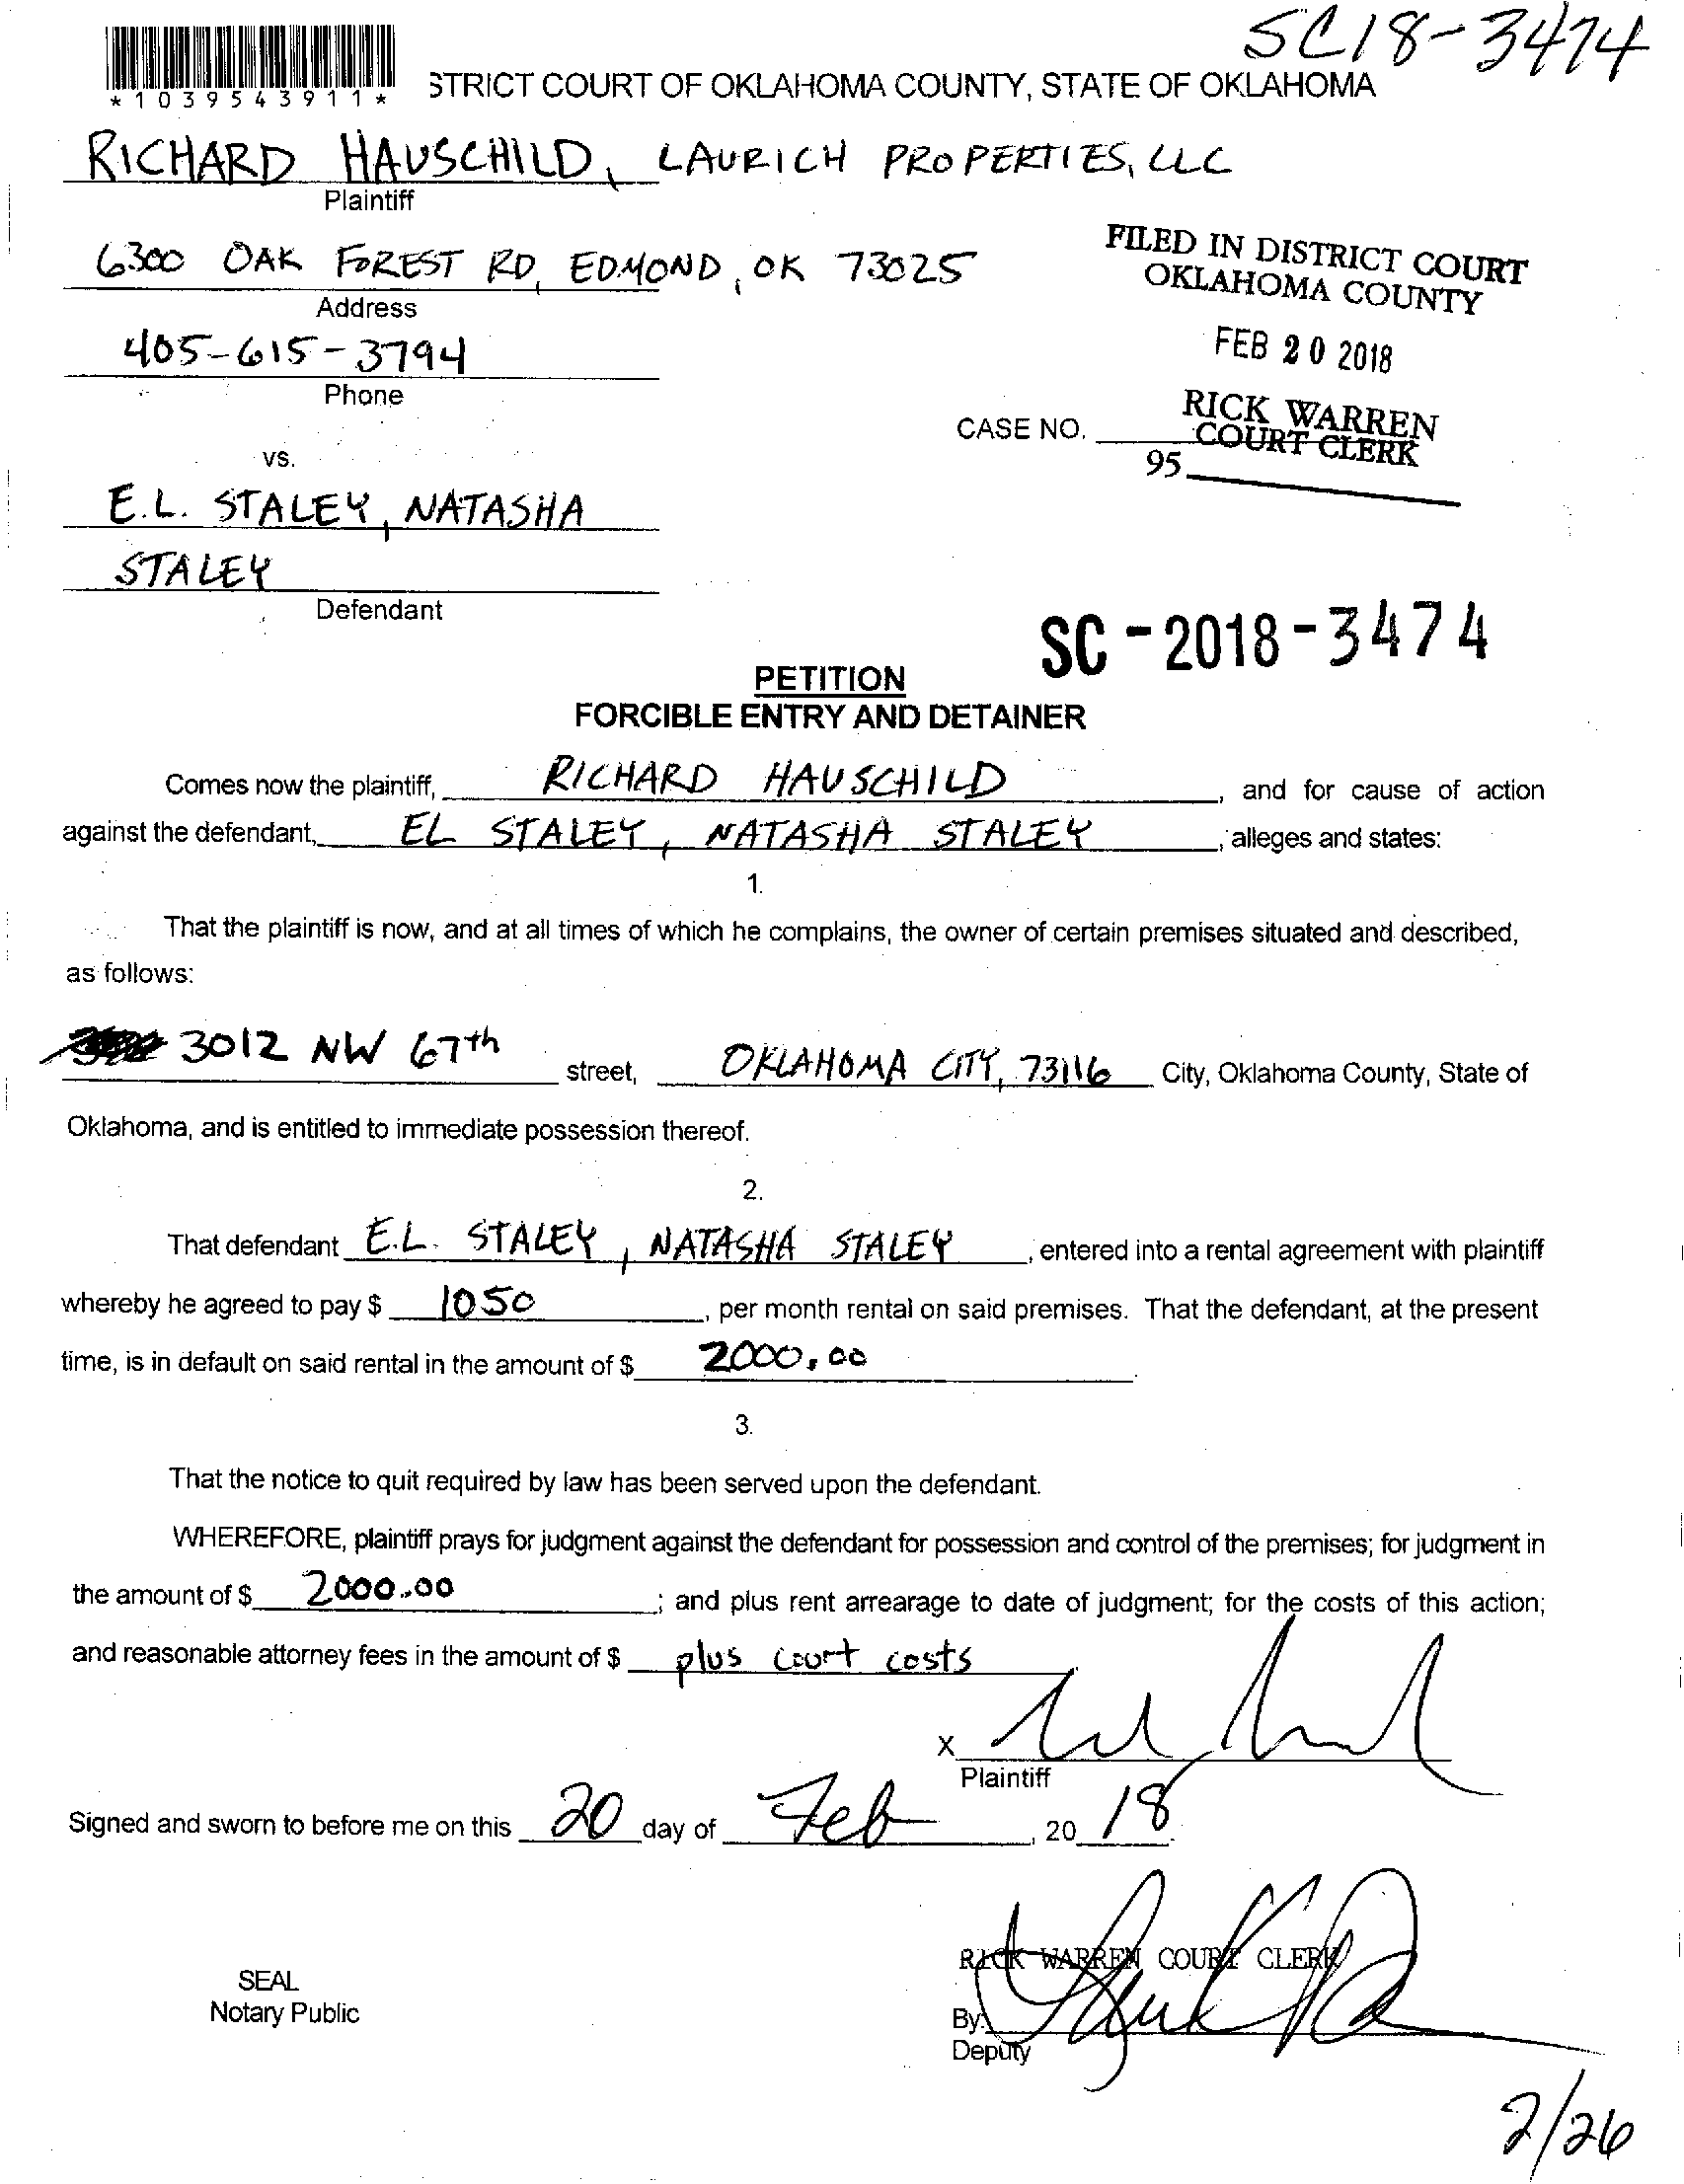 SC18-3474
*1039543911*
STRICT COURT OF OKLAHOMA COUNTY, STATE OF OKLAHOMA
RICHARD HAUSCHILD, LAURICH PROPERTIES, LLC
Plaintiff
6300 OAK FOREST RD, EDMOND, OK 73025
Address
FILED IN DISTRICT COURT
OKLAHOMA COUNTY
405-615-3794
Phone
FEB 20 2018
RICK WARREN
COURT CLERK
CASE NO.
95
vs.
E.L. STALEY, NATASHA
STALEY
Defendant
SC-2018-3474
PETITION
FORCIBLE ENTRY AND DETAINER
Comes now the plaintiff, RICHARD HAUSCHILD, and for cause of action
against the defendant, EL STALEY, NATASHA STALEY, alleges and states:
1.
That the plaintiff is now, and at all times of which he complains, the owner of certain premises situated and described,
as follows:
3012 NW 67th street, OKLAHOMA CITY, 73116 City, Oklahoma County, State of
Oklahoma, and is entitled to immediate possession thereof.
2.
That defendant E.L. STALEY, NATASHA STALEY, entered into a rental agreement with plaintiff
whereby he agreed to pay $ 1050, per month rental on said premises. That the defendant, at the present
time, is in default on said rental in the amount of $ 2000.00.
3.
That the notice to quit required by law has been served upon the defendant.
WHEREFORE, plaintiff prays for judgment against the defendant for possession and control of the premises; for judgment in
the amount of $ 2000.00; and plus rent arrearage to date of judgment; for the costs of this action;
and reasonable attorney fees in the amount of $ plus court costs
X
Plaintiff
Signed and sworn to before me on this 20 day of Feb, 2018.
RICK WARREN COURT CLERK
SEAL
Notary Public
By:
Deputy
2/26